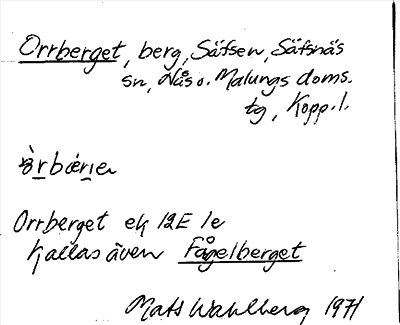 Orrberget, berg, Säfsen, Säfsnäs
sn, Nås o. Malungs doms.
tg, Kopp. l.
òrbæ̀rιen
Orrberget ek 12E 1e
kallas även Fågelberget
Mats Wahlberg 1971